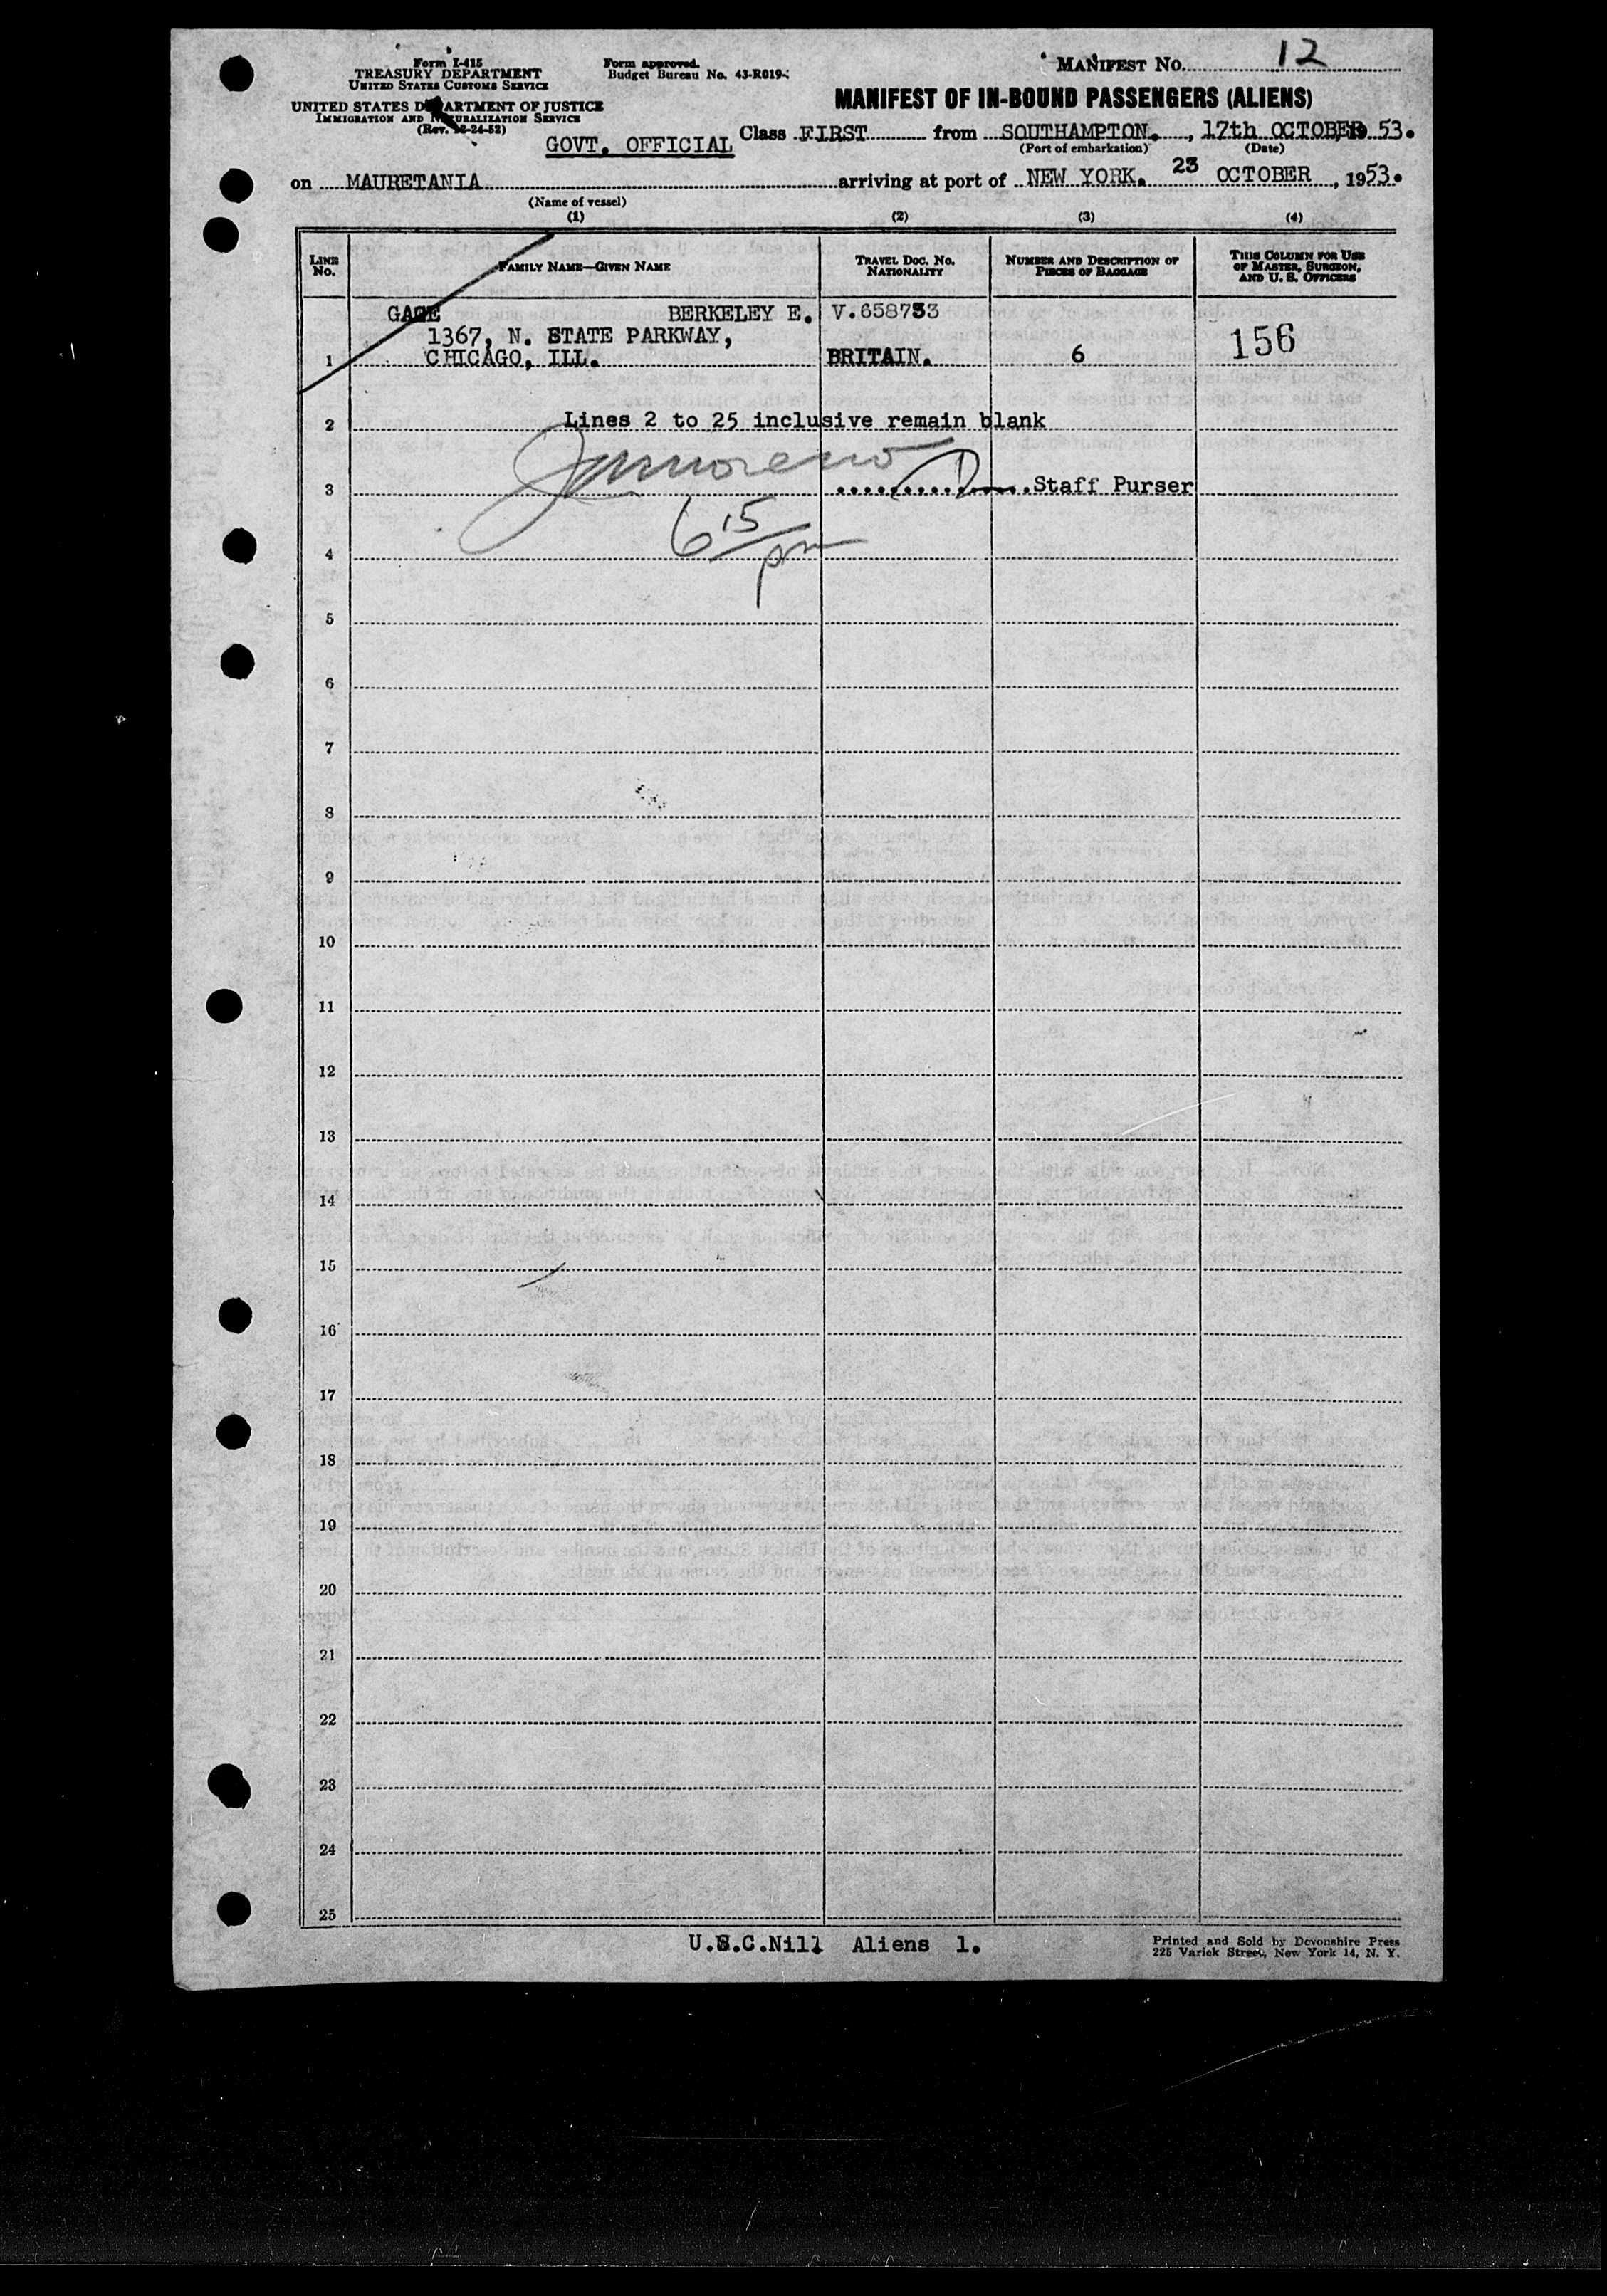 Form I-415
TREASURY DEPARTMENT
UNITED STATES CUSTOMS SERVICE
UNITED STATES DEPARTMENT OF JUSTICE
IMMIGRATION AND NATURALIZATION SERVICE
(Rev. 12-24-52)
Form approved.
Budget Bureau No. 43-R019-
MANIFEST No. 12
MANIFEST OF IN-BOUND PASSENGERS (ALIENS)
GOVT. OFFICIAL Class FIRST from SOUTHAMPTON. , 17th OCTOBER 53.
(Port of embarkation) (Date)
on MAURETANIA arriving at port of NEW YORK. 23 OCTOBER , 1953.
(Name of vessel)
(1) (2) (3) (4)
LINE No. FAMILY NAME—GIVEN NAME TRAVEL DOC. No. NATIONALITY NUMBER AND DESCRIPTION OF PIECES OF BAGGAGE THIS COLUMN FOR USE OF MASTER, SURGEON, AND U. S. OFFICERS
GAGE BERKELEY E. V.658733
1367, N. STATE PARKWAY, 156
1 CHICAGO, ILL. BRITAIN. 6
2 Lines 2 to 25 inclusive remain blank
3 Staff Purser
6 15 pm
4
5
6
7
8
9
10
11
12
13
14
15
16
17
18
19
20
21
22
23
24
25
U.S.C.Nill Aliens 1.
Printed and Sold by Devonshire Press
225 Varick Street, New York 14, N. Y.